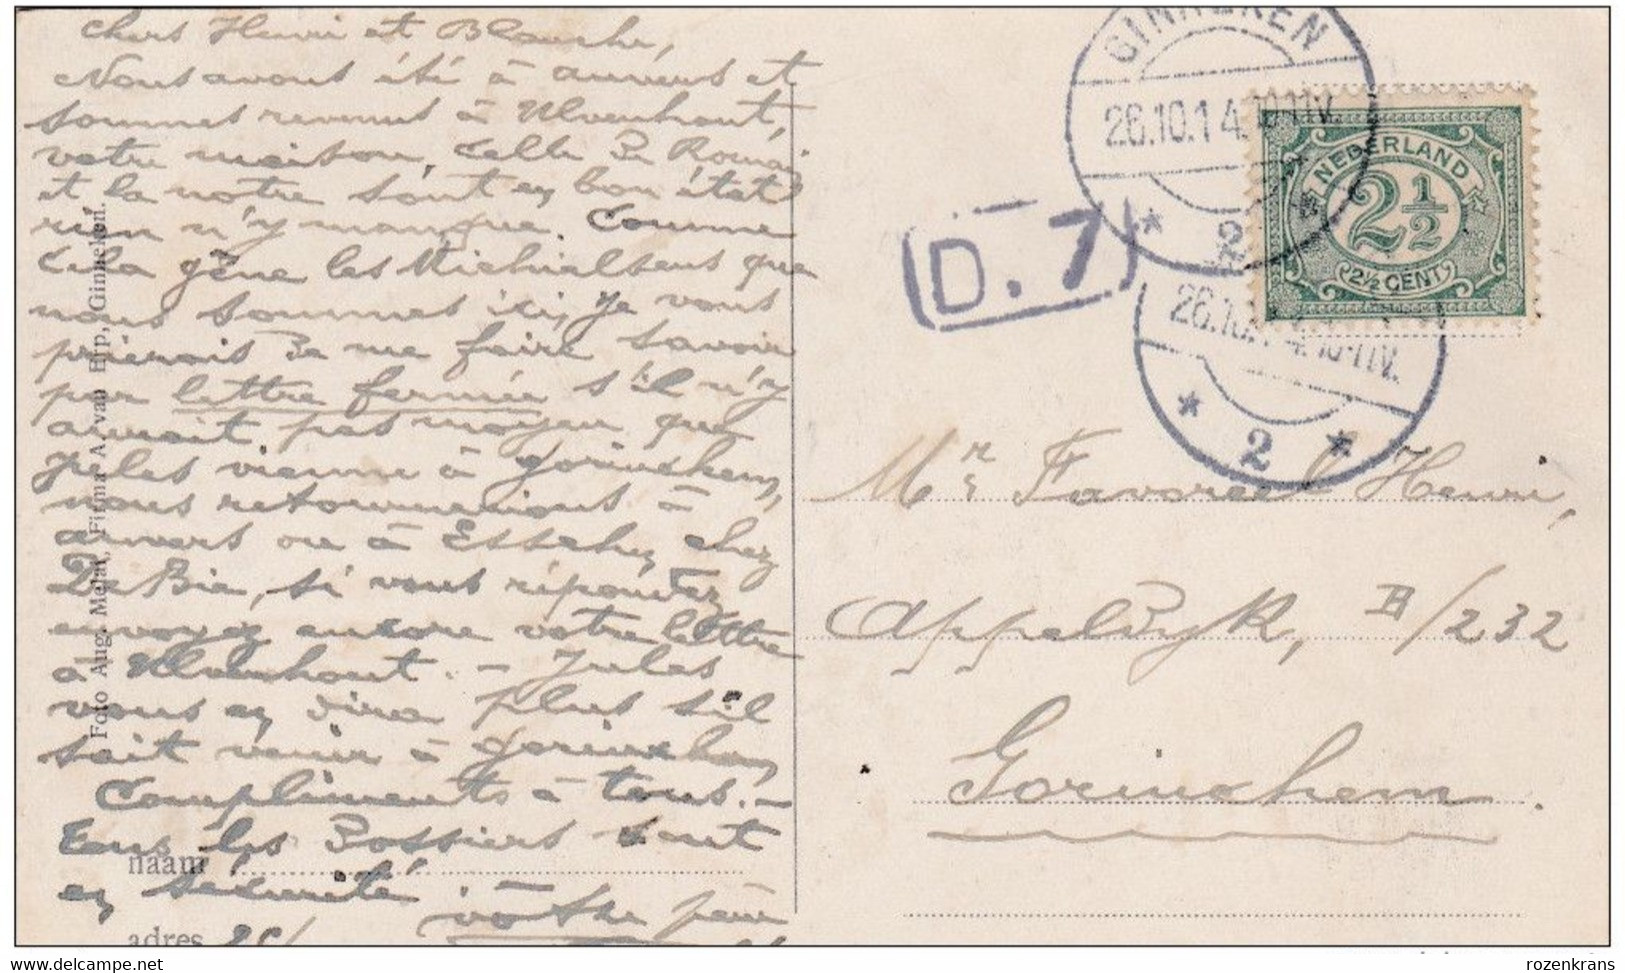 Chers Henri et Blanche,
Nous avons été à anvers et
sommes revenus à Ulvenhout,
votre maison, celle De Romai
et la notre sont en bon état
rien n'y manque. Comme
cela gêne les Michielsens que
nous sommes ici, je vous
prierais De me faire savoir
par lettre fermée s'il n'y
aurait pas moyen que
Jules vienne à Gorinchem,
nous retournerions à
anvers ou à Esschen chez
De Bie, si vous répondez
envoyez encore votre lettre
à Ulvenhout. - Jules
vous en dira plus s'il
sait venir à Gorinchem
Compliments à tous. -
Tous les Dossiers sont
en sécurité votre père
naam
adres
Foto Aug. , Firma A. van Erp, Ginneken.
GINNEKEN
26.10.14. 10-11V.
2
NEDERLAND
2½
2½ CENT
D. 7
26.10.14. 10-11V.
2
Mr Favoreel Henri,
Appeldyk, B/232
Gorinchem.
www.delcampe.net
rozenkrans